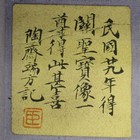 民國廿九年得
關聖寶像一
尊得此甚喜
陶齋端方記